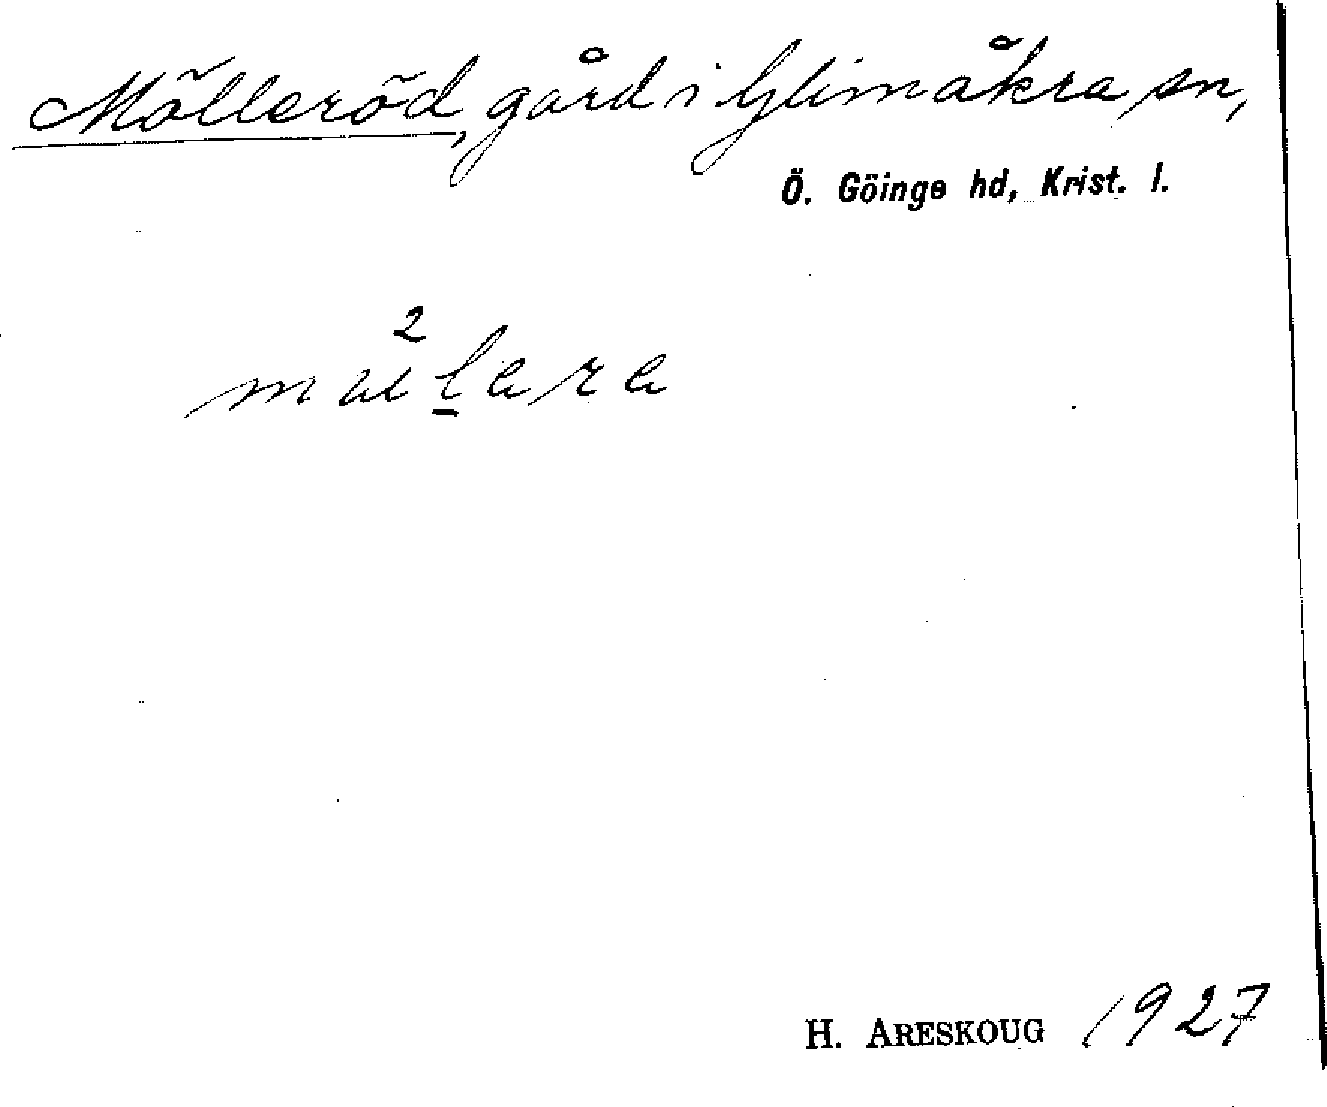 Mölleröd, gård i Glimåkra sn,
Ö. Göinge hd, Krist. l.
H. ARESKOUG 1927